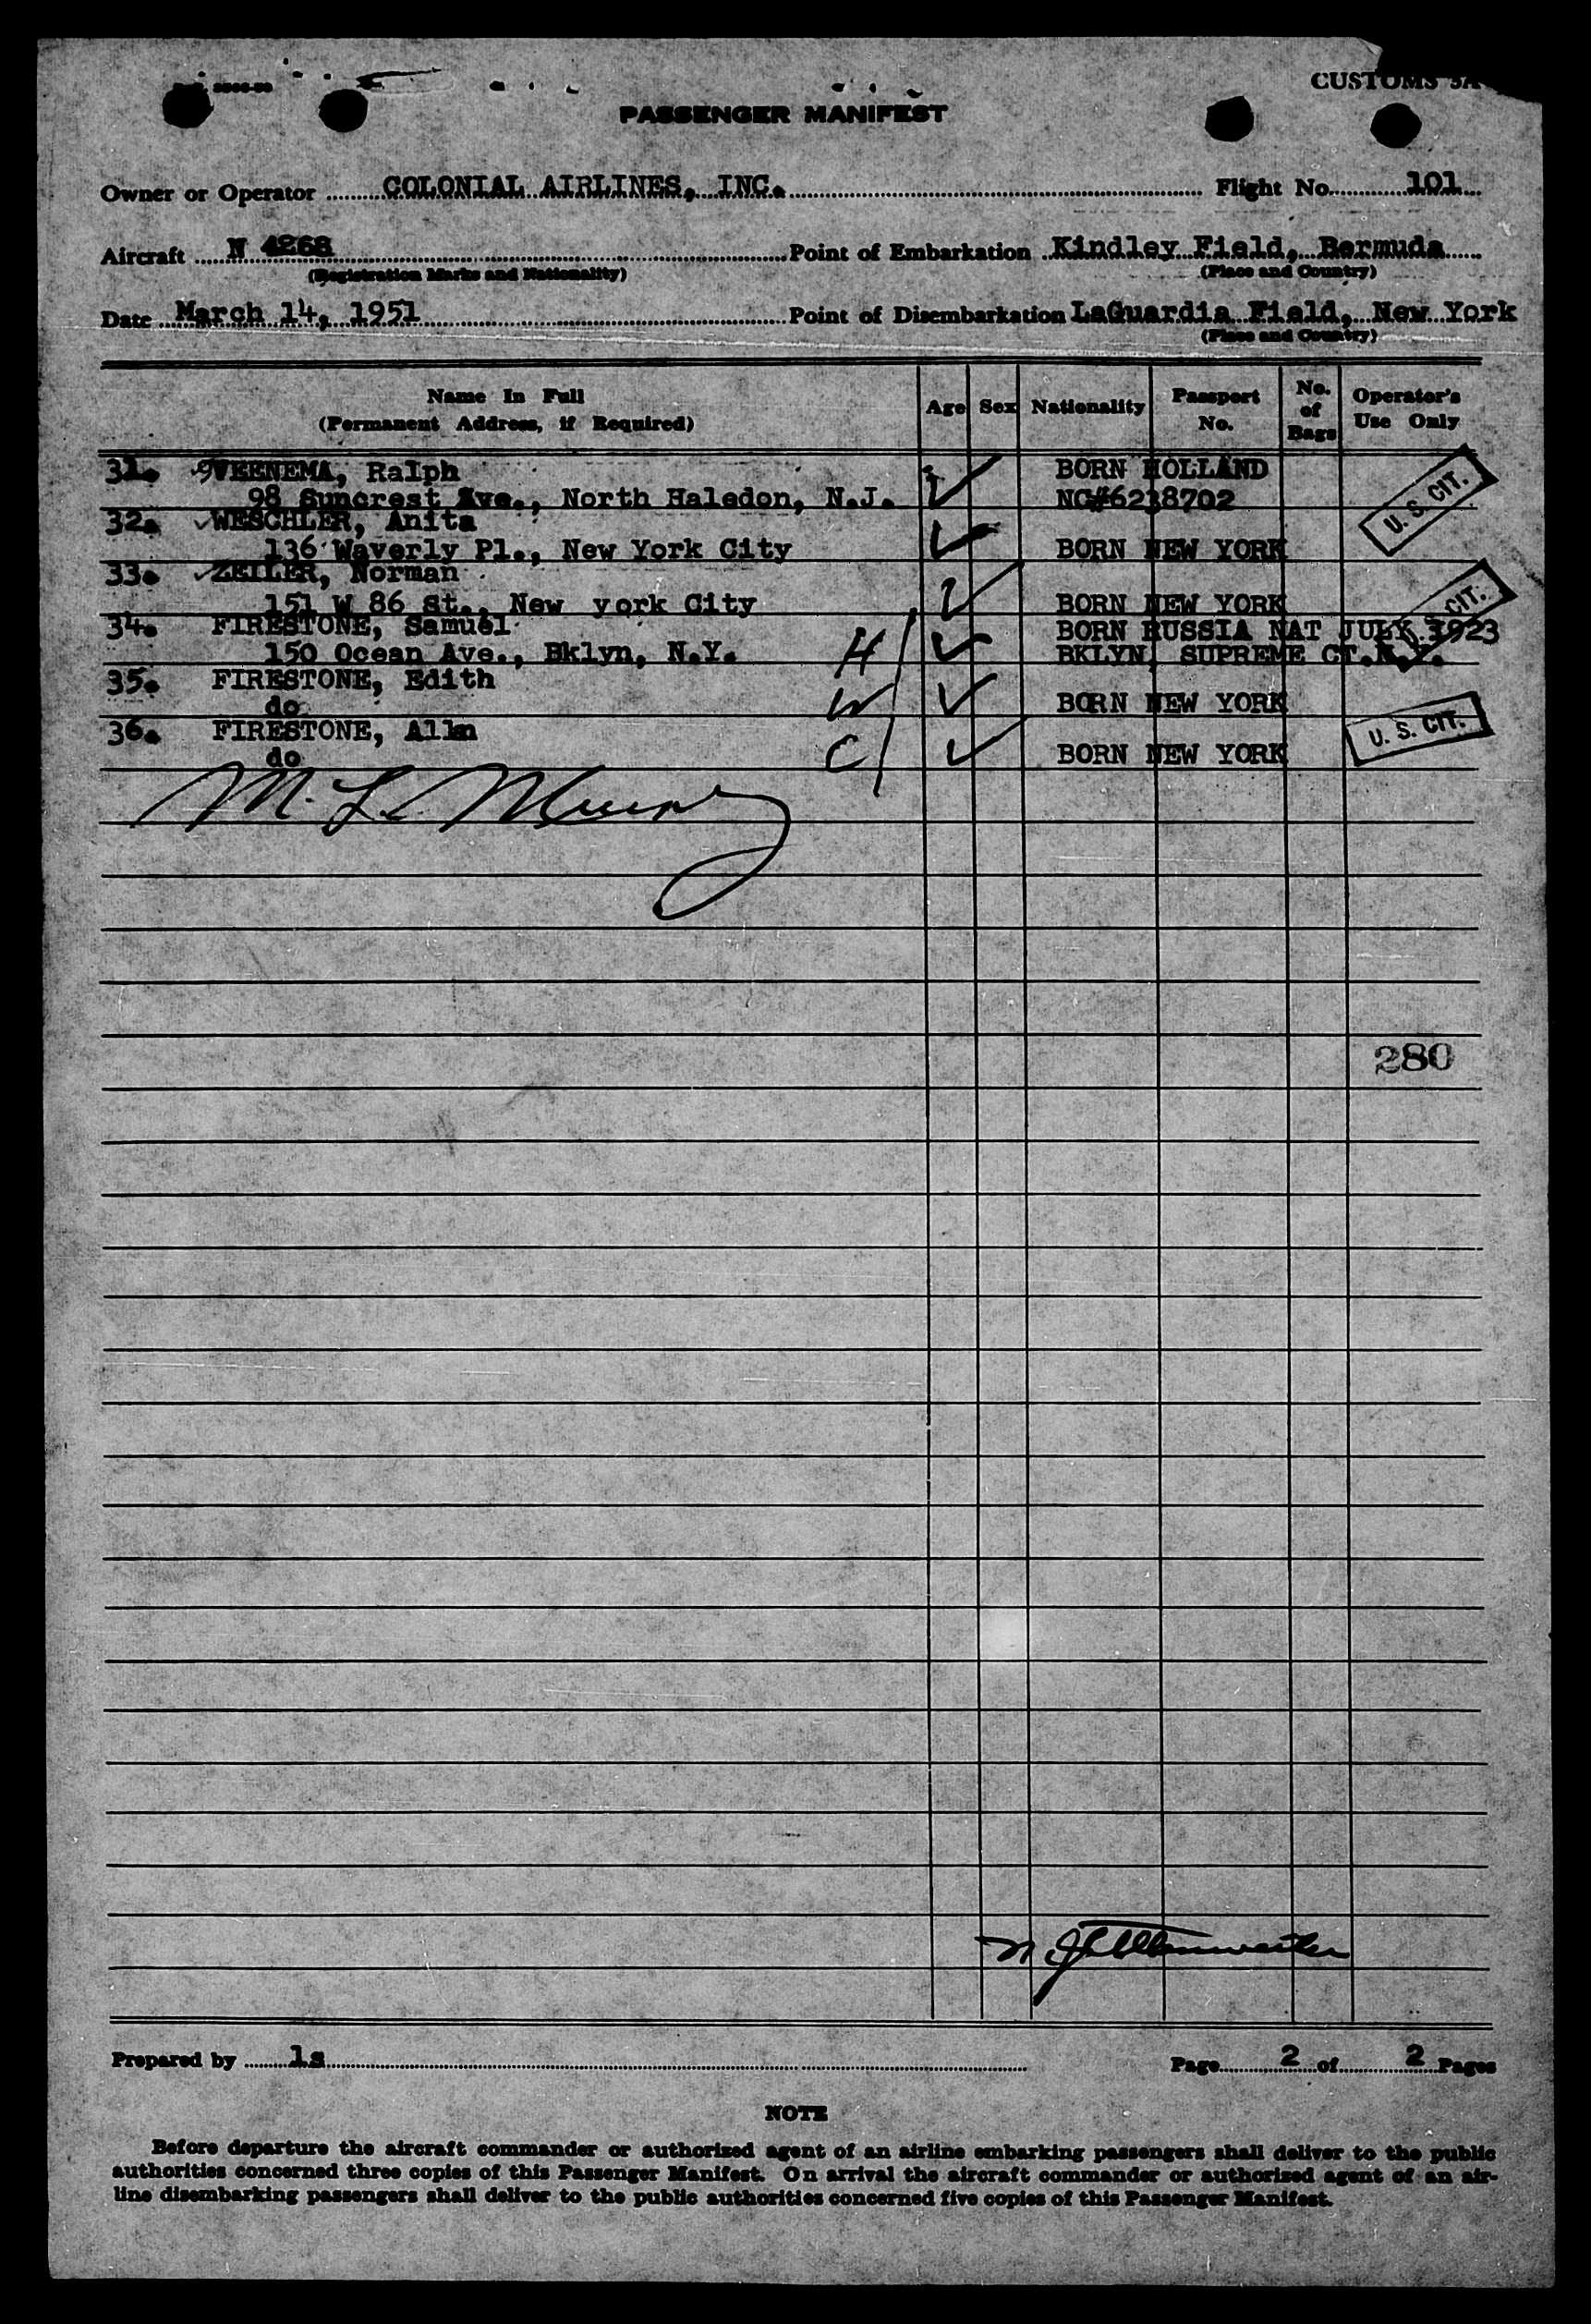 CUSTOMS 5A
PASSENGER MANIFEST
Owner or Operator COLONIAL AIRLINES, INC. Flight No. 101
Aircraft N 4268 Point of Embarkation Kindley Field, Bermuda
(Registration Marks and Nationality) (Place and Country)
Date March 14, 1951 Point of Disembarkation LaGuardia Field, New York
(Place and Country)
Name In Full Age Sex Nationality Passport No. of Operator's
(Permanent Address, if Required) No. Bags Use Only
31. VEENEMA, Ralph BORN HOLLAND
98 Suncrest Ave., North Haledon, N.J. NC#6238702 U. S. CIT.
32. WESCHLER, Anita
136 Waverly Pl., New York City BORN NEW YORK
33. ZEILER, Norman
151 W 86 St., New york City BORN NEW YORK CIT.
34. FIRESTONE, Samuel BORN RUSSIA NAT JULY 1923
150 Ocean Ave., Bklyn, N.Y. H BKLYN, SUPREME CT.N.Y.
35. FIRESTONE, Edith
do W BORN NEW YORK
36. FIRESTONE, Allan U. S. CIT.
do C BORN NEW YORK
M. L. Murphy
280
Prepared by ls Page 2 of 2 Pages
NOTE
Before departure the aircraft commander or authorized agent of an airline embarking passengers shall deliver to the public
authorities concerned three copies of this Passenger Manifest. On arrival the aircraft commander or authorized agent of an air-
line disembarking passengers shall deliver to the public authorities concerned five copies of this Passenger Manifest.